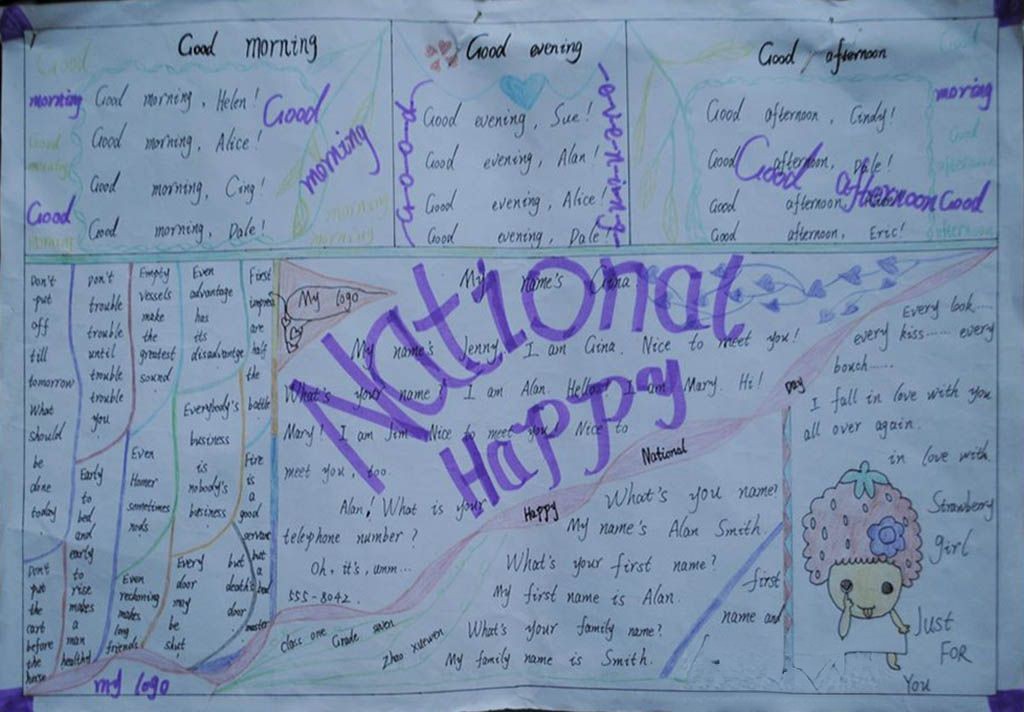 Good morning
Good
morning
Good morning, Helen!
Good morning, Alice!
Good morning, Cing!
Good morning, Dale!
Good
morning
Good
morning
Good evening
Good evening, Sue!
Good evening, Alan!
Good evening, Alice!
Good evening, Dale!
Good
Good afternoon
Good afternoon, Cindy!
Good afternoon, Dale!
Good afternoon,
Good afternoon, Eric!
Good afternoon
moring
Good
Good
afternoon
Good
Don't
put
off
till
tomorrow
What
should
be
done
today
Don't
put
the
cart
before
the
horse
don't
trouble
trouble
until
trouble
trouble
you
Early
to
bed
and
early
to
rise
makes
a
man
healthy
Empty
vessels
make
the
greatest
sound
Even
Homer
sometimes
nods
Even
reckoning
makes
long
friends
Even
advantage
has
its
disadvantge
Everybody's
business
is
nobody's
business
Every but
door death's
may door
be
shut
First
are
half
the
battle
Fire
is
a
good
servant
but
a
bad
master
My logo
National
Happy
My name's Gina.
My name's Jenny, I am Gina. Nice to meet you!
What's your name? I am Alan. Hello! I am Mary. Hi!
Mary! I am Jim. Nice to meet you! Nice to
meet you, too.
Alan! What is your
telephone number?
Oh, it's, umm...
555-8042.
Happy National Day
What's you name?
My name's Alan Smith.
What's your first name?
My first name is Alan.
What's your family name?
My family name is Smith.
first
name and
class one Grade seven
zhao xuewen
my logo
Every look......
every kiss...... every
bouch......
I fall in love with you
all over again.
in love with
Strawberry
girl
Just
FOR
You